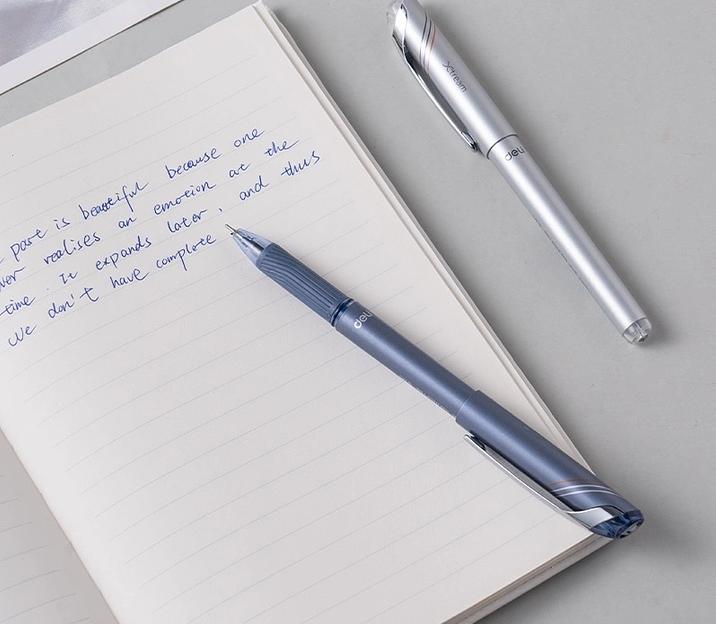 past is beautiful because one
ver realises an emotion at the
time. It expands later, and thus
we don't have complete
Xtream
deli
deli